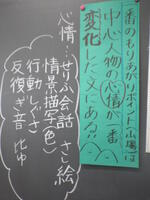 一番のもりあがりポイント(山場)は
中心人物の心情が一番
変化した文にある!!
心情…せりふ 会話 さし絵
情景描写(色)
行動 しぐさ
反復 ぎ音 比ゆ